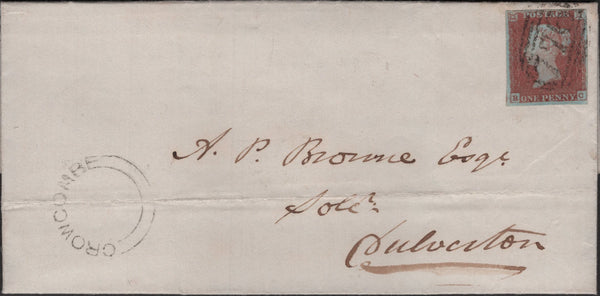 POSTAGE
B C
ONE PENNY
A. P. Browne Esqr
Solr.
Dulverton
CROWCOMBE